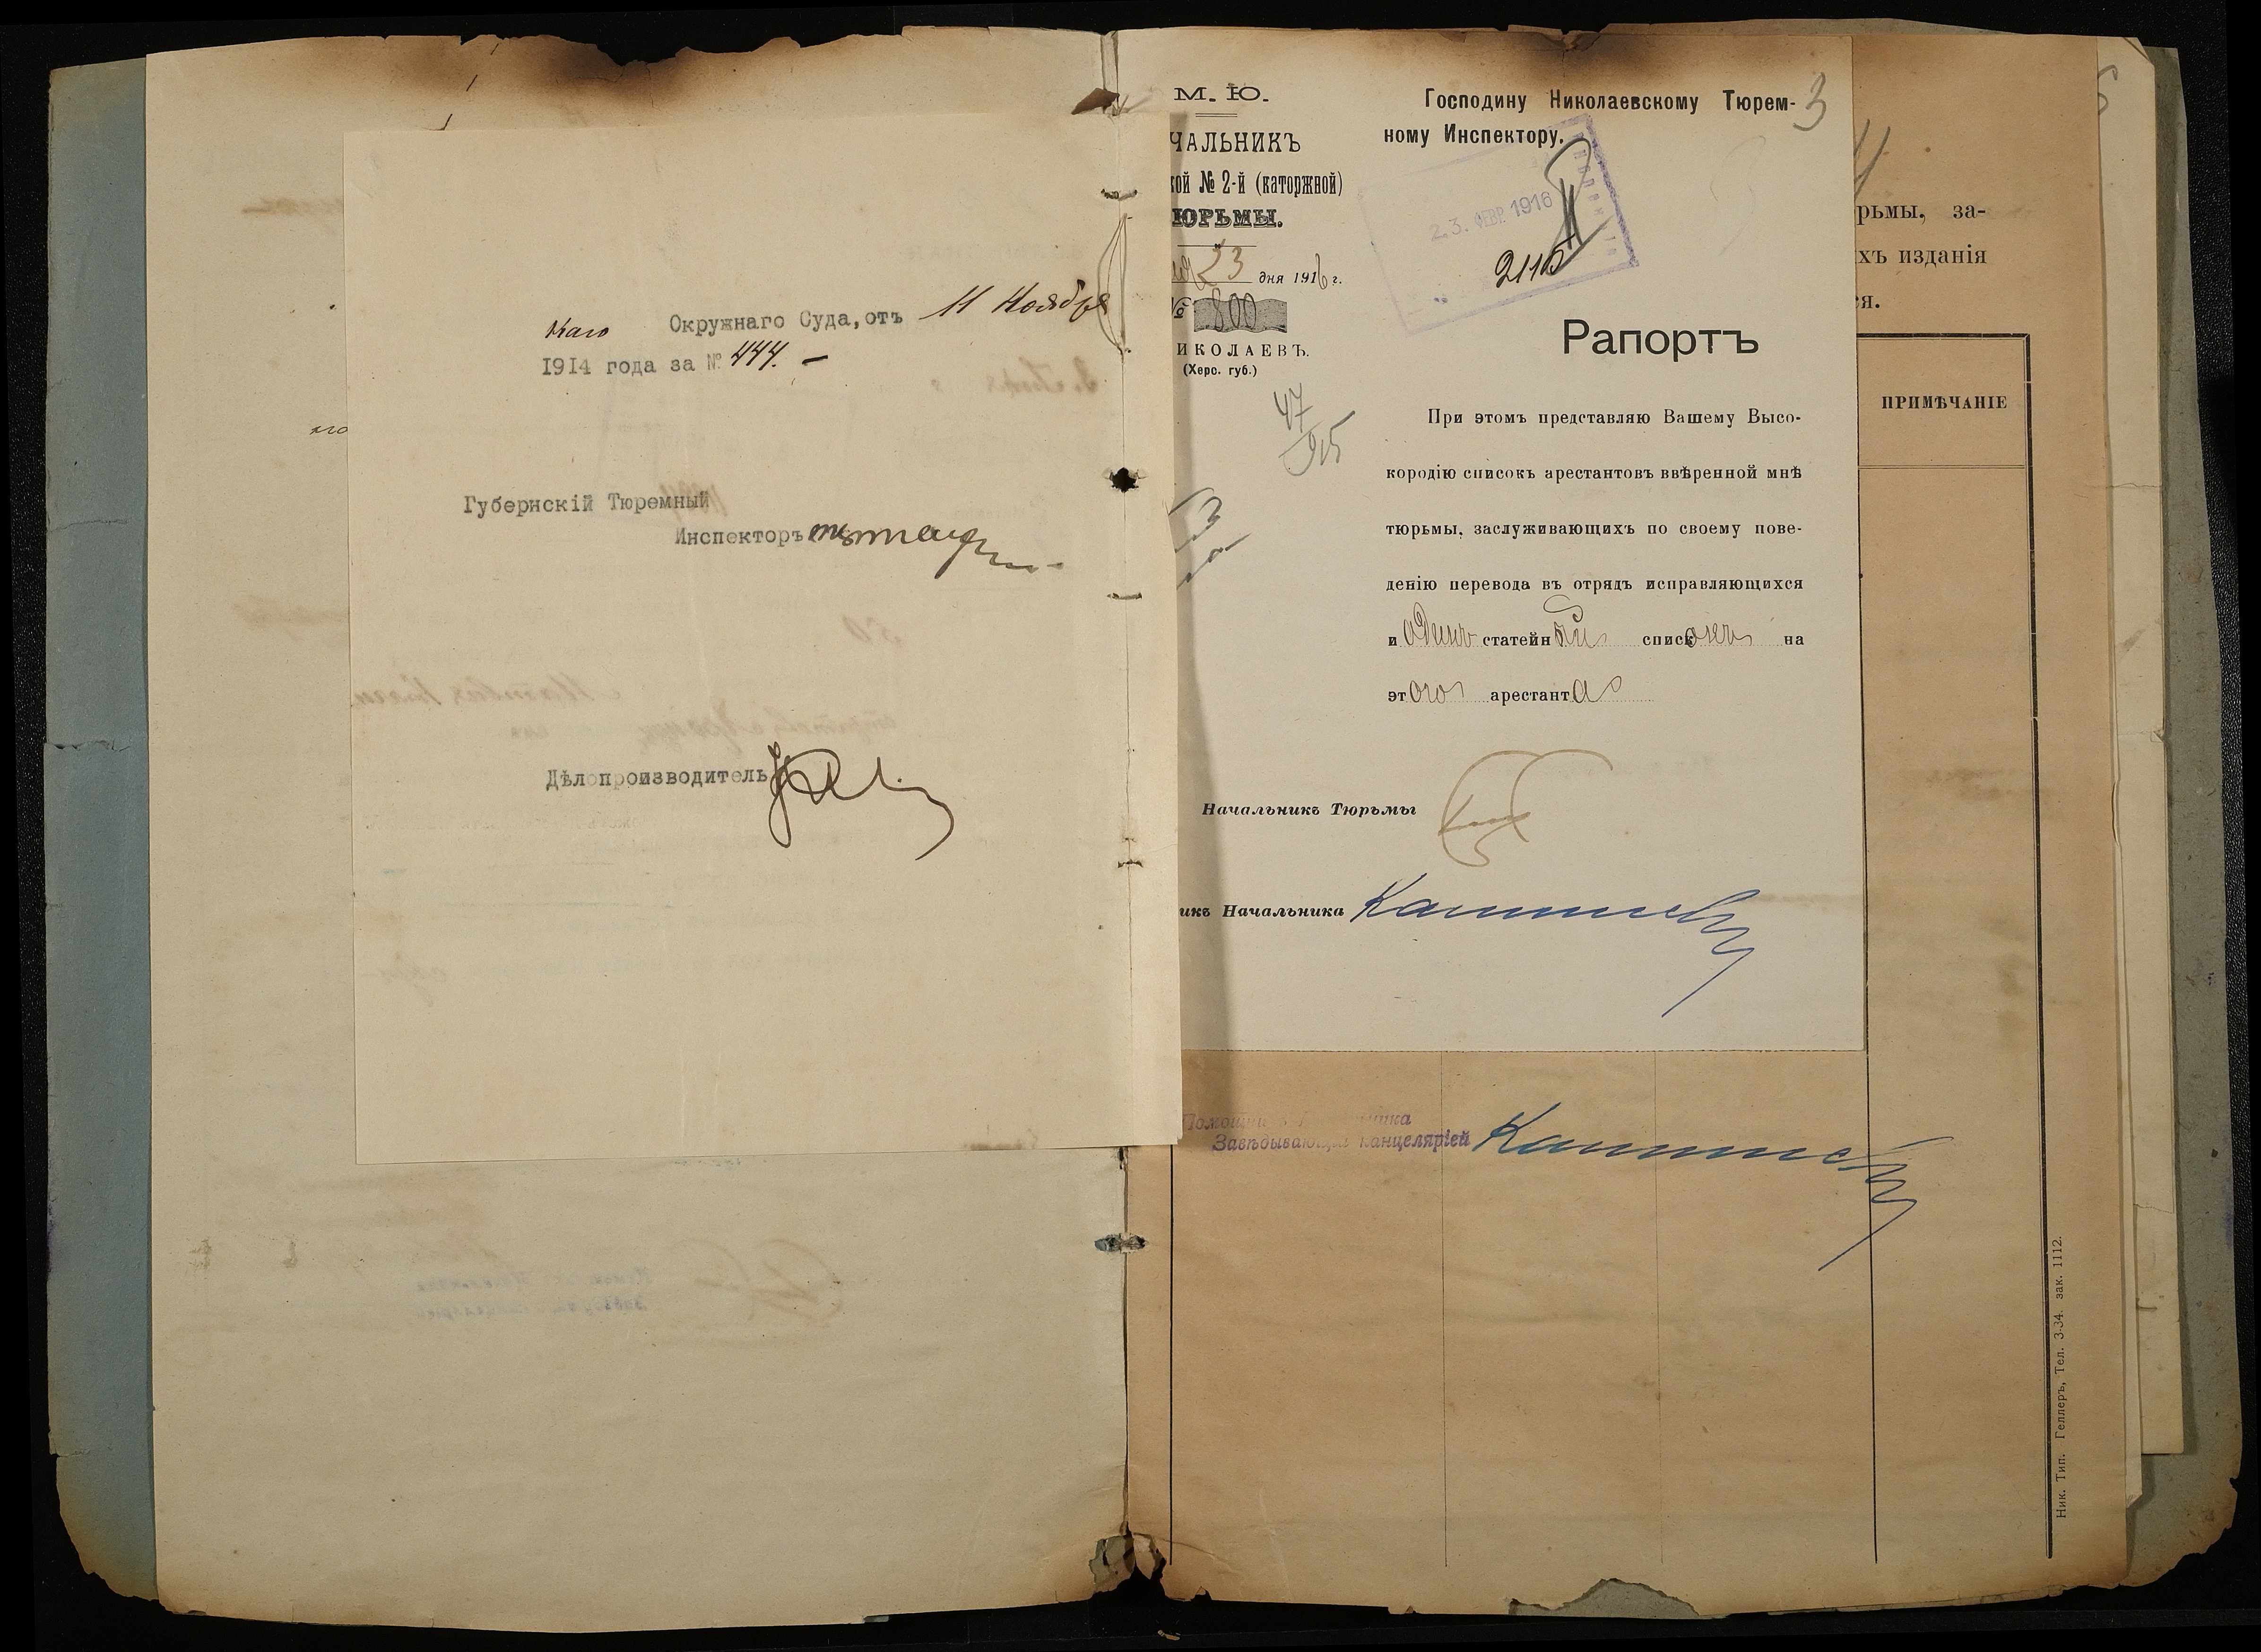 каго Окружнаго Суда, отъ 11 Ноября
1914 года за № 444. —
Губернскій Тюремный
Инспекторъ
Дѣлопроизводитель
М. Ю.
ЧАЛЬНИКЪ
кой № 2-й (каторжной)
ЮРЬМЫ.
23 дня 1916 г.
№ 800
ИКОЛАЕВЪ.
(Херс. губ.)
47
915
Господину Николаевскому Тюрем-
ному Инспектору.
3
23. ФЕВР. 1916
2115
Рапортъ
При этомъ представляю Вашему Высо-
кородію списокъ арестантовъ ввѣренной мнѣ
тюрьмы, заслуживающихъ по своему пове-
денію перевода въ отрядъ исправляющихся
и одинъ статейный списокъ на
этого арестанта
Начальникъ Тюрьмы
икъ Начальника
рьмы, за-
хъ изданія
ся.
ПРИМѢЧАНІЕ
Завѣдывающій канцеляріей
Ник. Тип. Геллеръ, Тел. 3-34. зак. 1112.